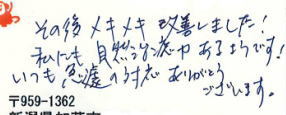 その後メキメキ改善しました!
私にも自然治癒力あるようです!
いつも謙虚の対応ありがとう
ございます。
〒959-1362
新潟県加茂市